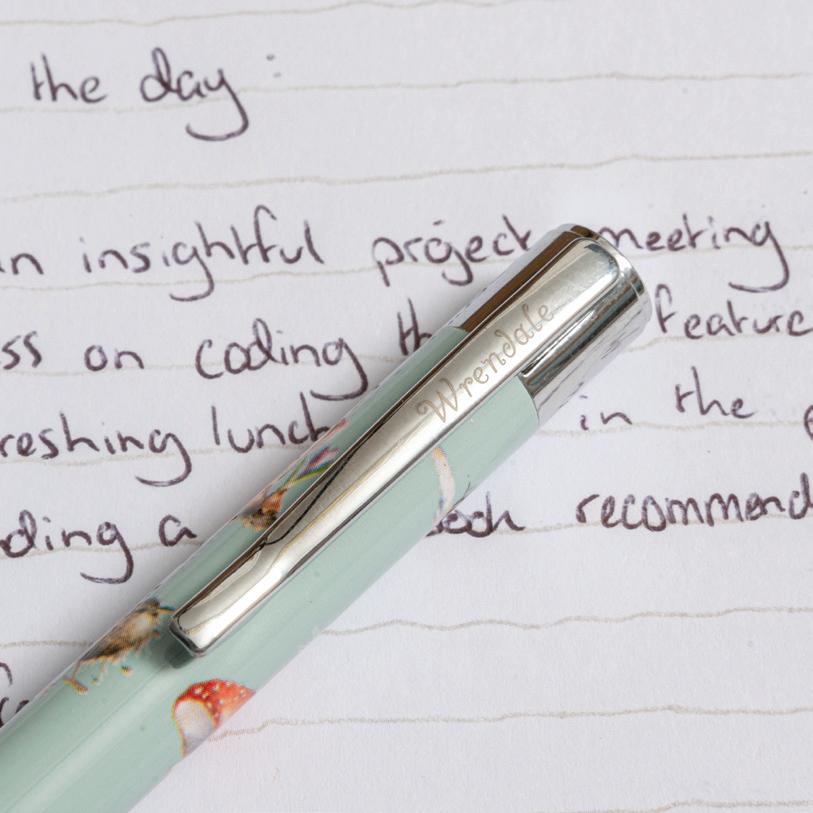 the day :
an insightful project meeting
ss on coding th feature
reshing lunch in the
ding a book recommend
Wrendale